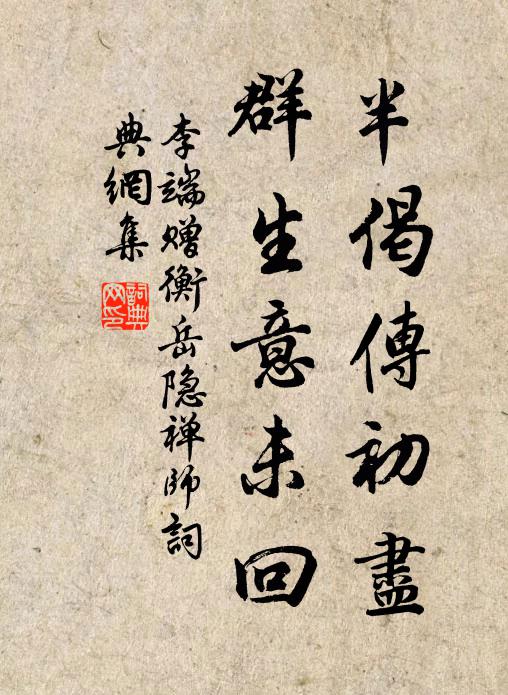 半偈傳初盡
群生意未回
李端贈衡岳隐禅师詞
典網集
詞典網印